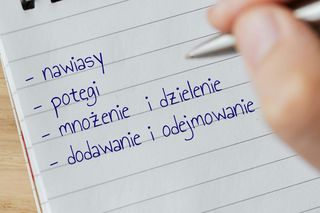 - nawiasy
- potęgi
- mnożenie i dzielenie
- dodawanie i odejmowanie